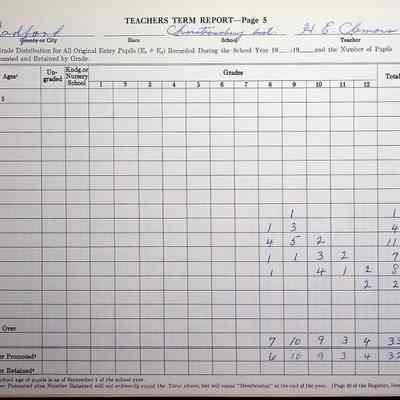 TEACHERS TERM REPORT—Page 5
Radford Christiansburg Inst. H E Clemons
County or City Race School Teacher
Grade Distribution for All Original Entry Pupils (E₁ + E₂) Recorded During the School Year 19 -19 and the Number of Pupils
omoted and Retained by Grade.
Ages¹ Un-graded Kndg. or Nursery School Grades Total
1 2 3 4 5 6 7 8 9 10 11 12
5
1 1
1 3 4
4 5 2 11
1 1 3 2 7
1 4 1 2 8
2 2
Over
7 10 9 3 4 33
er Promoted² 6 10 9 3 4 32
er Retained²
chool age of pupils is as of September 1 of the school year.
er Promoted plus Number Retained will not ordinarily equal the Total above, but will equal "Membership" at the end of the year. (Page 20 of the Register, lines